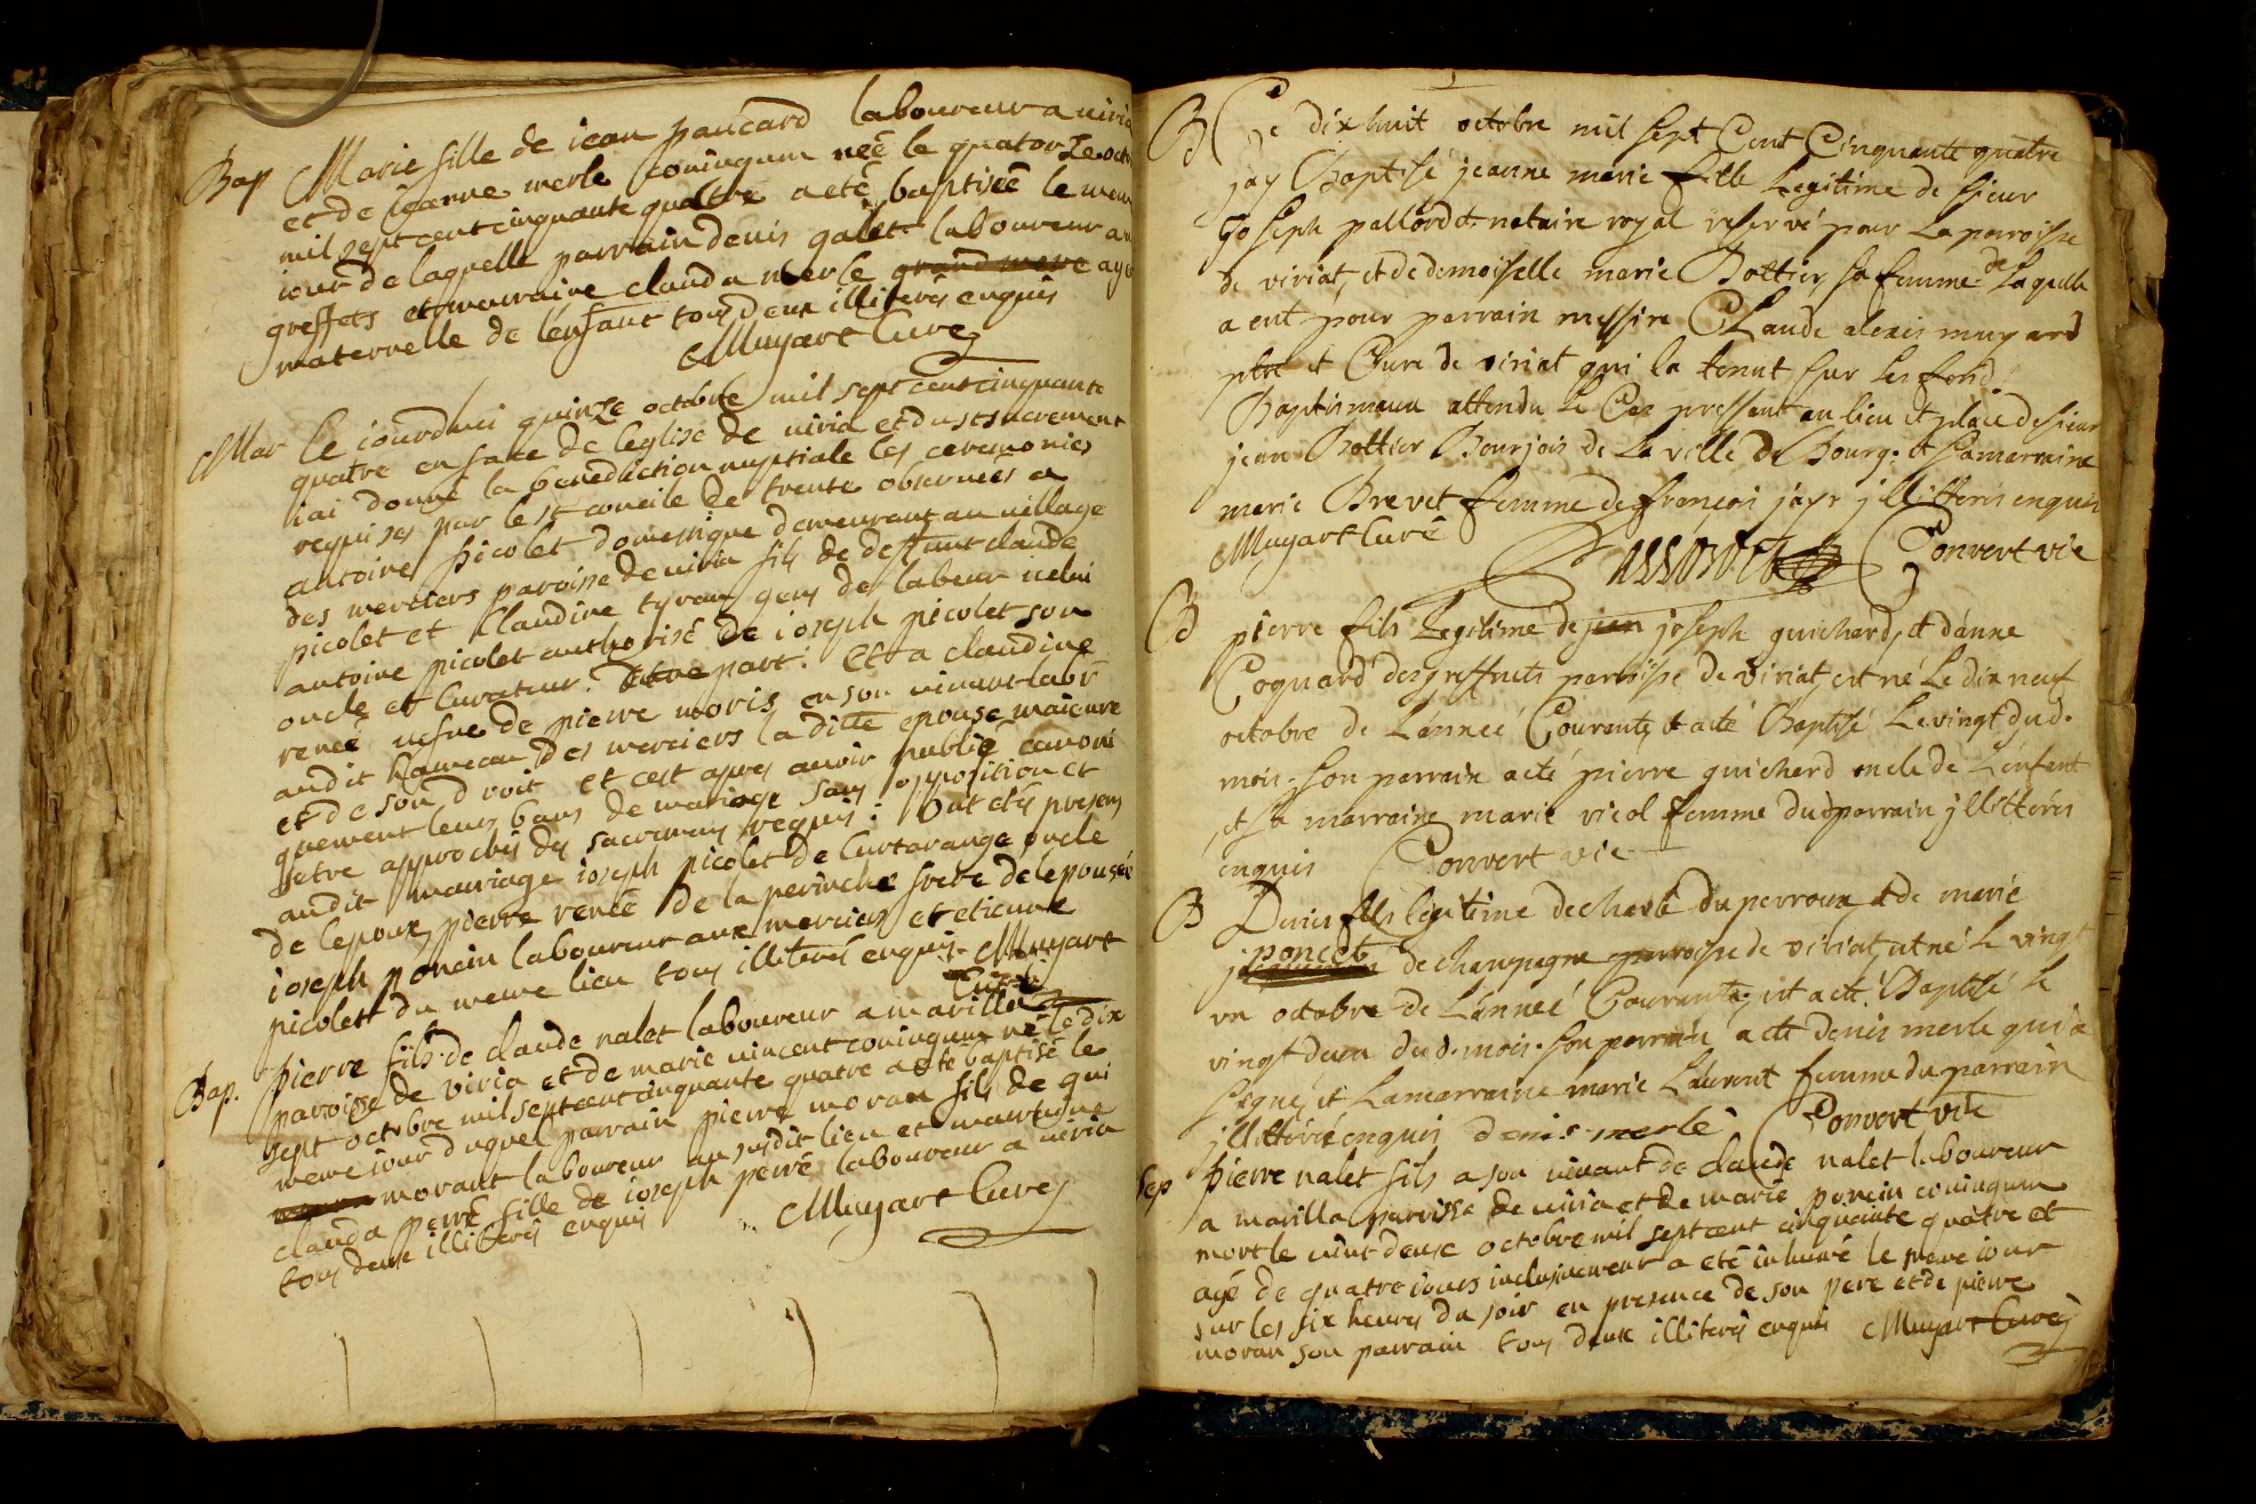 Bap Marie fille de iean pancard laboureur a viria
et de ieanne merle coniugum née le quatorze octo
mil sept cent cinquante quattre a eté baptisée le meme
iour de laquelle parrain denis galet laboureur au
greffets et mairaine clauda merle grand mere ayeu
maternelle de l'enfant tous deux illiterés enquis
Muyart Curé
Mar le iourdhui quinze octobre mil sept cent cinquante
quatre en face de leglise de viria et du st sacrement
iai donné la benediction nuptiale les ceremonies
requises par le st concile de trente observées a
antoine picolet domestique demeurant au village
des merciers paroisse de viria fils de deffunt claude
picolet et Claudine tyran gens de labeur ledit
antoine picolet authorisé de ioseph picolet son
oncle et Curateur. d'une part: Et a claudine
renée vefve de pierre moris en son vivant labr
audit hameau des merciers la ditte epouse maieure
et de son droit et cest apres avoir publié canoni
quement leurs bans de mariage sans opposition et
s'etre approchés des sacremens requis: Ont étés presens
audit mauriage ioseph picolet de Curtarange oncle
de lepoux, pierre renée de la perinche frere de lepousée
ioseph poncin laboureur aux merciers et etienne
picolett du meme lieu tous illiterés enquis Muyart
Curé
Bap. pierre fils de claude nalet laboureur a marilla
paroisse de viria et de marie vincent coniugum né le dix
sept octobre mil sept cent cinquante quatre a eté baptisé le
meme iour duquel parrain pierre moran fils de gui
morant laboureur au susdit lieu et mairaine
clauda perré fille de ioseph perré laboureur a viria
tous deux illiterés enquis Muyart Curé
B Ce dix huit octobre mil sept Cent Cinquante quatre
jay Baptisé jeanne marie fille Legitime de sieur
joseph pallordet notaire royal reservé pour la paroisse
de viriat, et de demoiselle marie Bottier sa femme de laquelle
a eut pour parrain messire Claude alexis muyard
ptre et Curé de viriat qui la tenut sur les fond
Baptismaux attendu le Cas pressent au lieu et place de sieur
jean Bottier Bourjois de la ville de Bourg. et sa marraine
marie Brevet femme de françois jayr jllitteris enquis
Muyart Curé Convert vic
B pierre fils Legitime de jean joseph guichard, et d'anne
Coquard des greffnets parroisse de viriat, est né Le dix neuf
octobre de L'annee Courante, et a eté Baptisé Le vingt dud.
mois. son parrain a eté pierre guichard oncle de L'enfent
et sa marraine marie vicol femme dud parrain jllittéris
enquis Convert vic
B Denis fils legitime de charle duperroux et de marie
poncet
de champagne parroisse de viriat, et né le vingt
un octobre de L'annee Courante, et a eté Baptisé le
vingt deux dud. mois. son parrain a eté denis merle qui a
signé, et la marraine marie Laurent femme du parrain
jllittéré enquis denis merle Convert vic
Sep pierre nalet fils a son vivant de claude nalet laboureur
a marilla parroisse de viria et de marie poncin coniugum
mort le vint deux octobre mil sept cent cinquante quatre et
agé de quatre iours inclusivement a eté inhumé le meme iour
sur les six heures du soir en presence de son pere et de pierre
moran son parrain tous deux illiterés enquis Muyart Curé